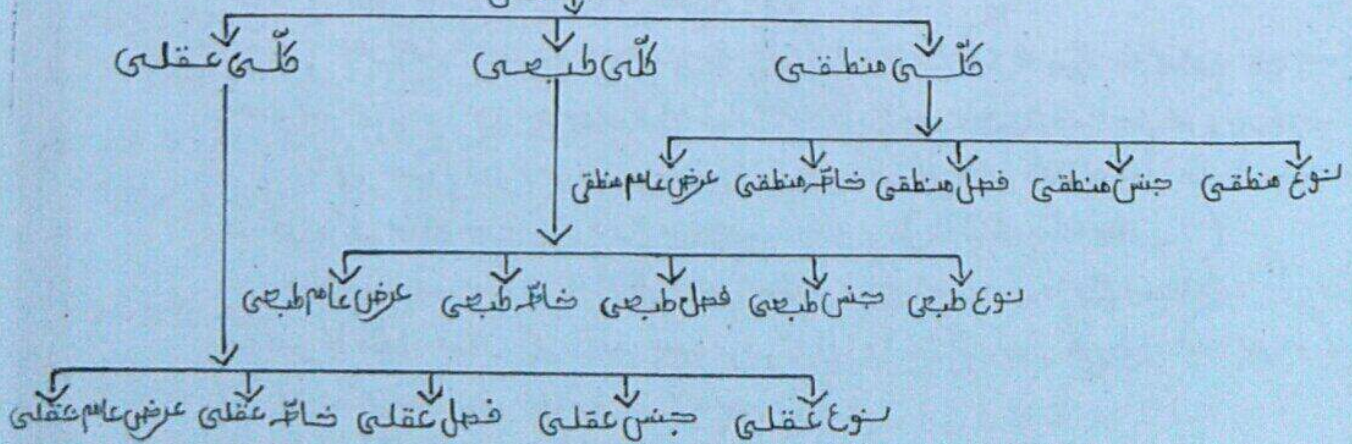 كلّی منطقی كلّی طبعی كلّی عقلی
نوع منطقی جنس منطقی فصل منطقی خاصّہ منطقی عرض عام منطقی
نوع طبعی جنس طبعی فصل طبعی خاصّہ طبعی عرض عام طبعی
نوع عقلی جنس عقلی فصل عقلی خاصّہ عقلی عرض عام عقلی